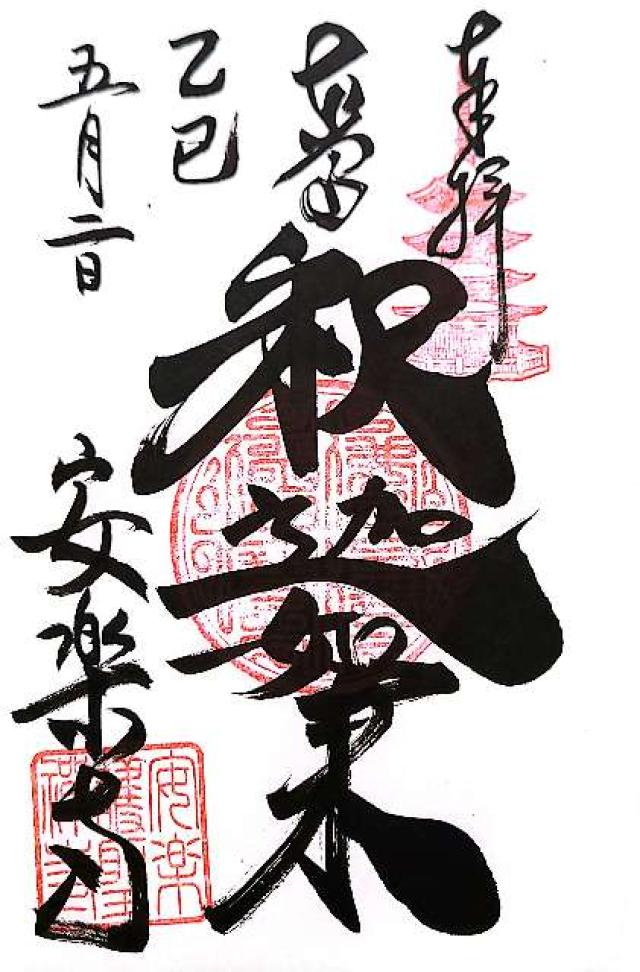 奉拝
釈迦如来
乙巳
五月二日
安楽寺
安楽
護聖
禅寺